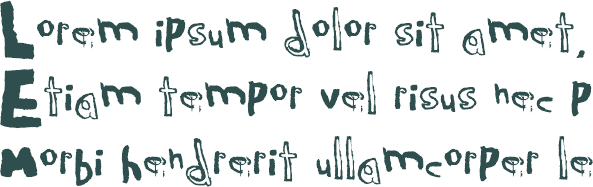 Lorem ipsum dolor sit amet,
Etiam tempor vel risus nec p
Morbi hendrerit ullamcorper le